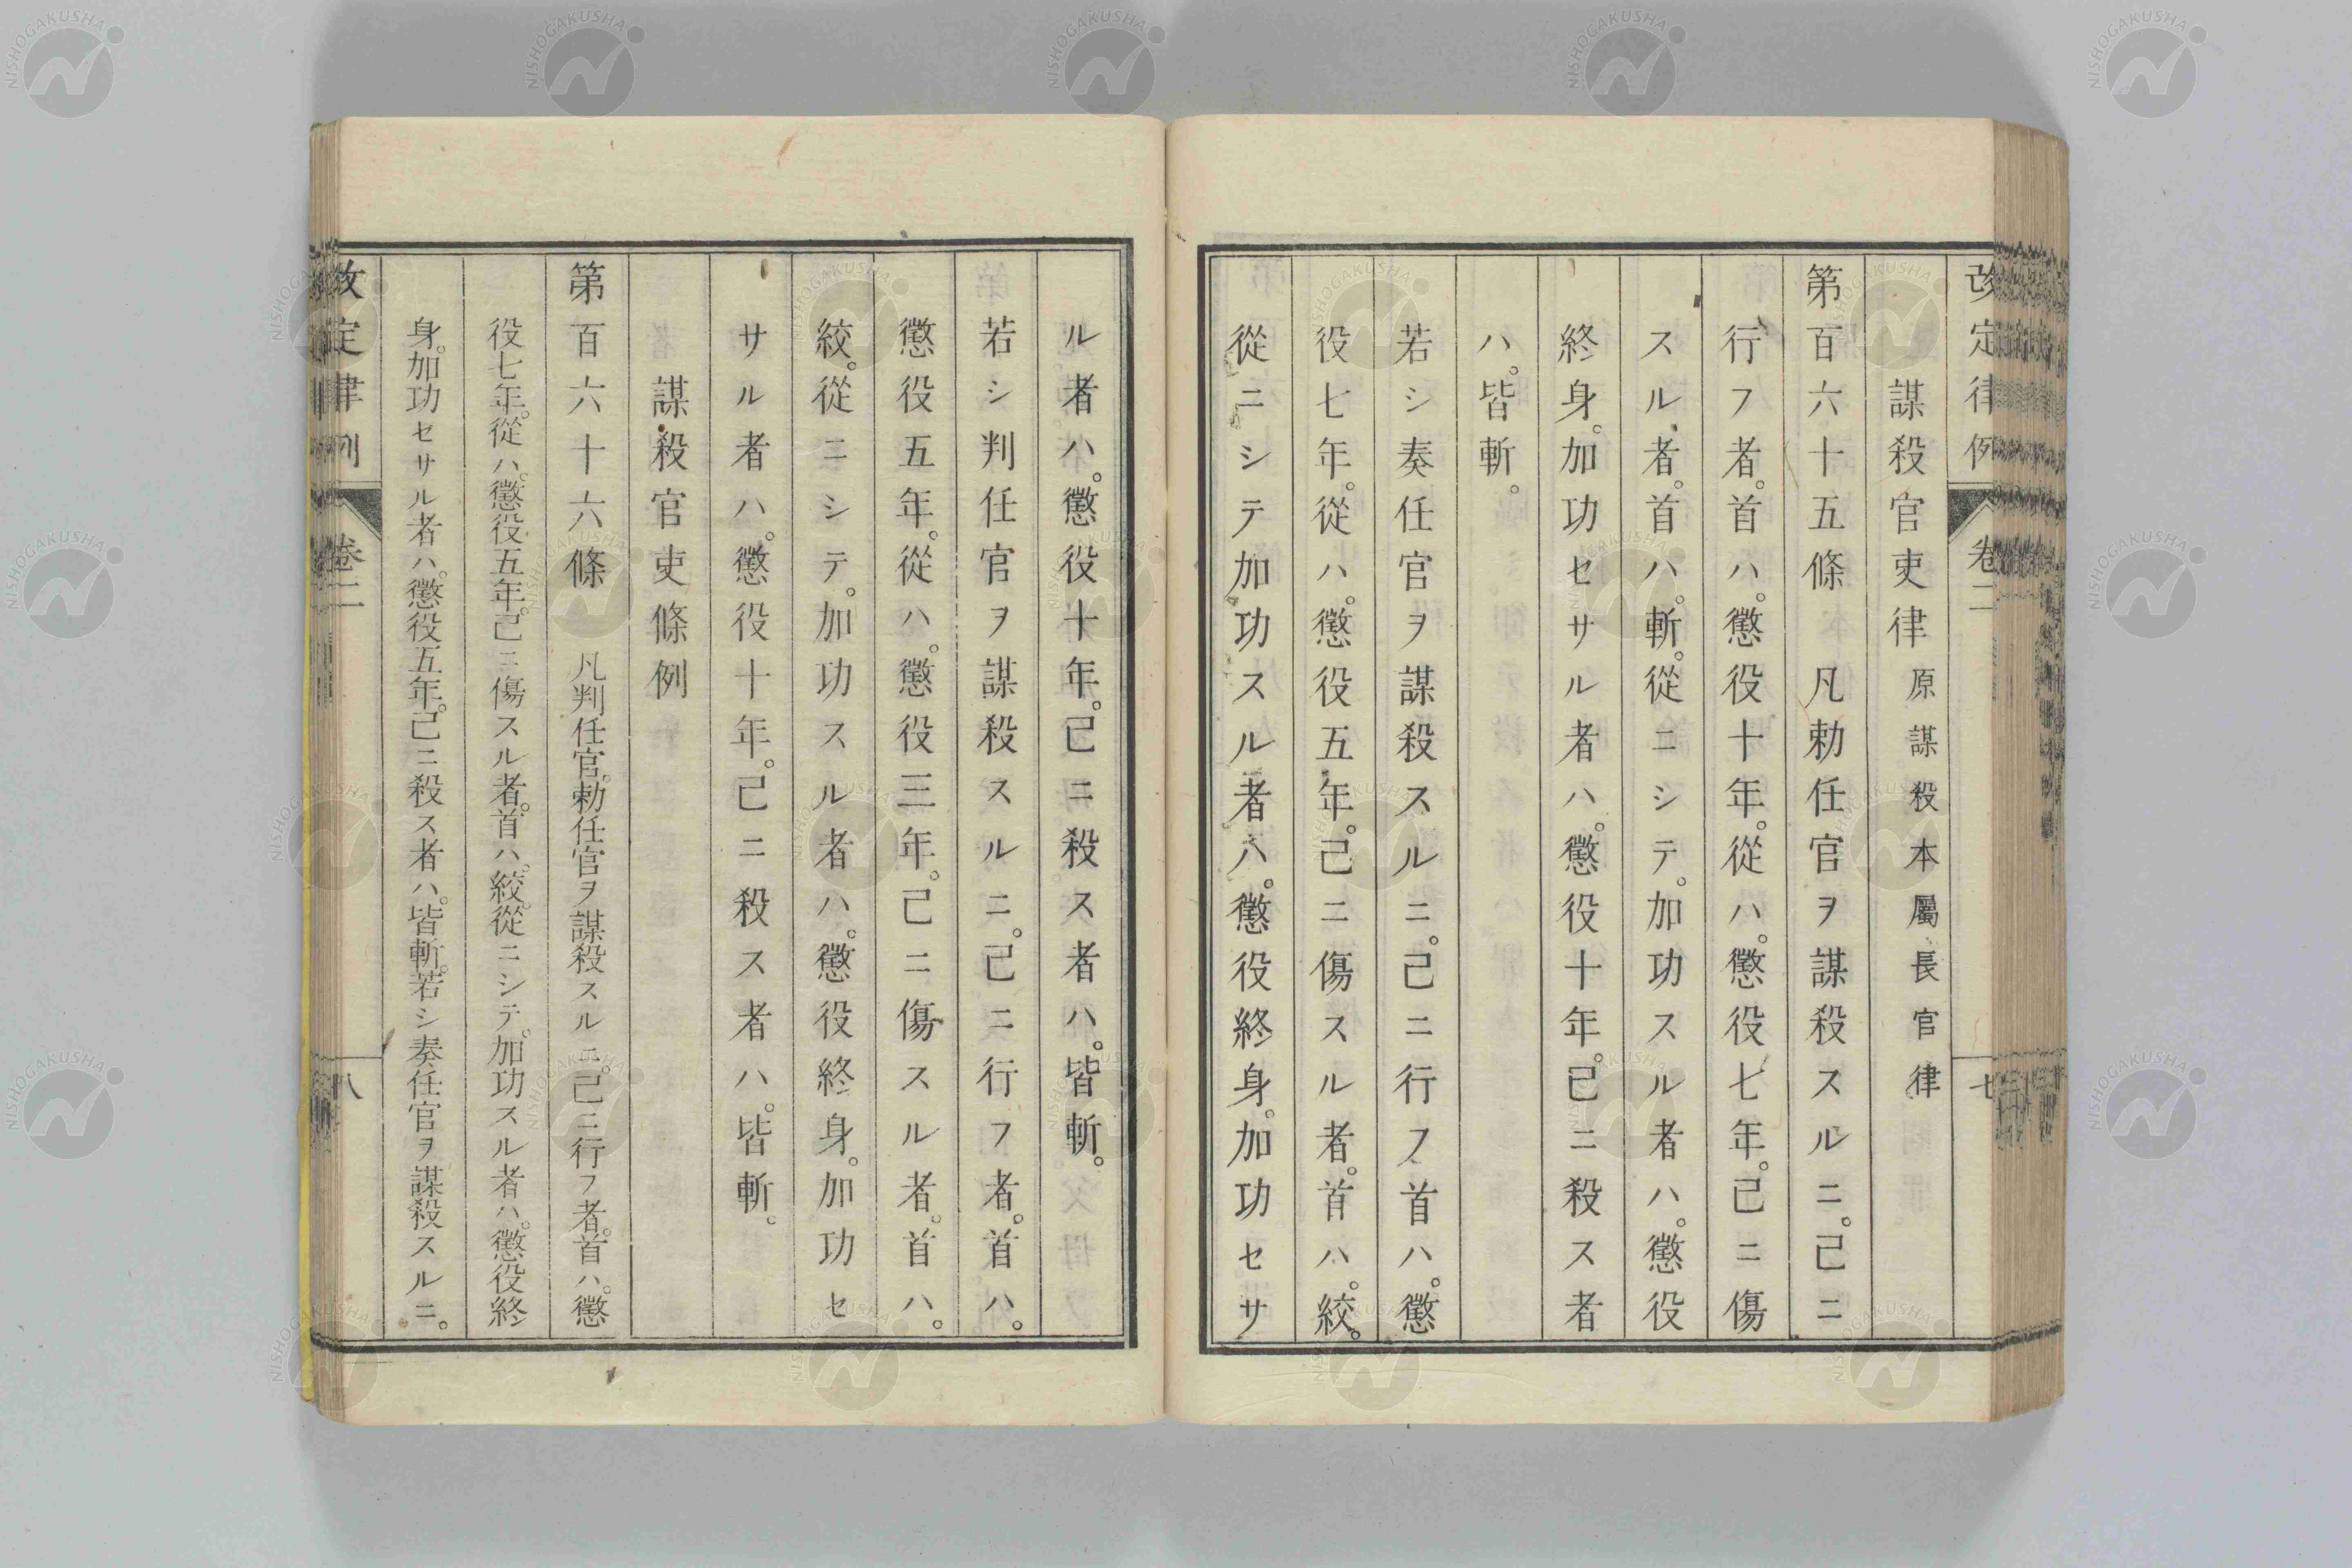 改定律例 卷二 七
謀殺官吏律 原謀殺本屬長官律
第百六十五條 凡勅任官ヲ謀殺スルニ。己ニ
行フ者。首ハ。懲役十年。從ハ。懲役七年。己ニ傷
スル者。首ハ。斬。從ニシテ。加功スル者ハ。懲役
終身。加功セサル者ハ。懲役十年。己ニ殺ス者
ハ。皆斬。
若シ奏任官ヲ謀殺スルニ。己ニ行フ首ハ。懲
役七年。從ハ。懲役五年。己ニ傷スル者。首ハ。絞。
從ニシテ加功スル者ハ。懲役終身。加功セサ
ル者ハ。懲役十年。己ニ殺ス者ハ。皆斬。
若シ判任官ヲ謀殺スルニ。己ニ行フ者。首ハ。
懲役五年。從ハ。懲役三年。己ニ傷スル者。首ハ。
絞。從ニシテ。加功スル者ハ。懲役終身。加功セ
サル者ハ。懲役十年。己ニ殺ス者ハ。皆斬。
謀殺官吏條例
第百六十六條 凡判任官。勅任官ヲ謀殺スルニ。己ニ行フ者。首ハ。懲
役七年。從ハ。懲役五年。己ニ傷スル者。首ハ。絞。從ニシテ。加功スル者ハ。懲役終
身。加功セサル者ハ。懲役五年。己ニ殺ス者ハ。皆斬。若シ奏任官ヲ謀殺スルニ。
改定律例 卷二 八
NISHOGAKUSHA